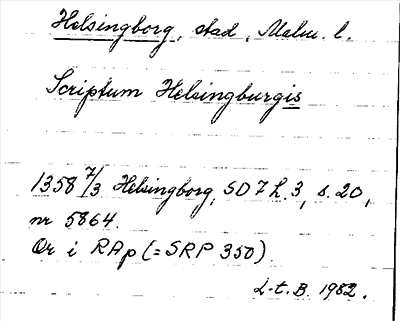 Helsingborg, stad, Malm. l.
Scriptum Helsingburgis
1358 7/3 Helsingborg, SD 7 h. 3, s. 20,
nr 5864.
Or i RAp (= SRP 350)
L-t. B. 1982.